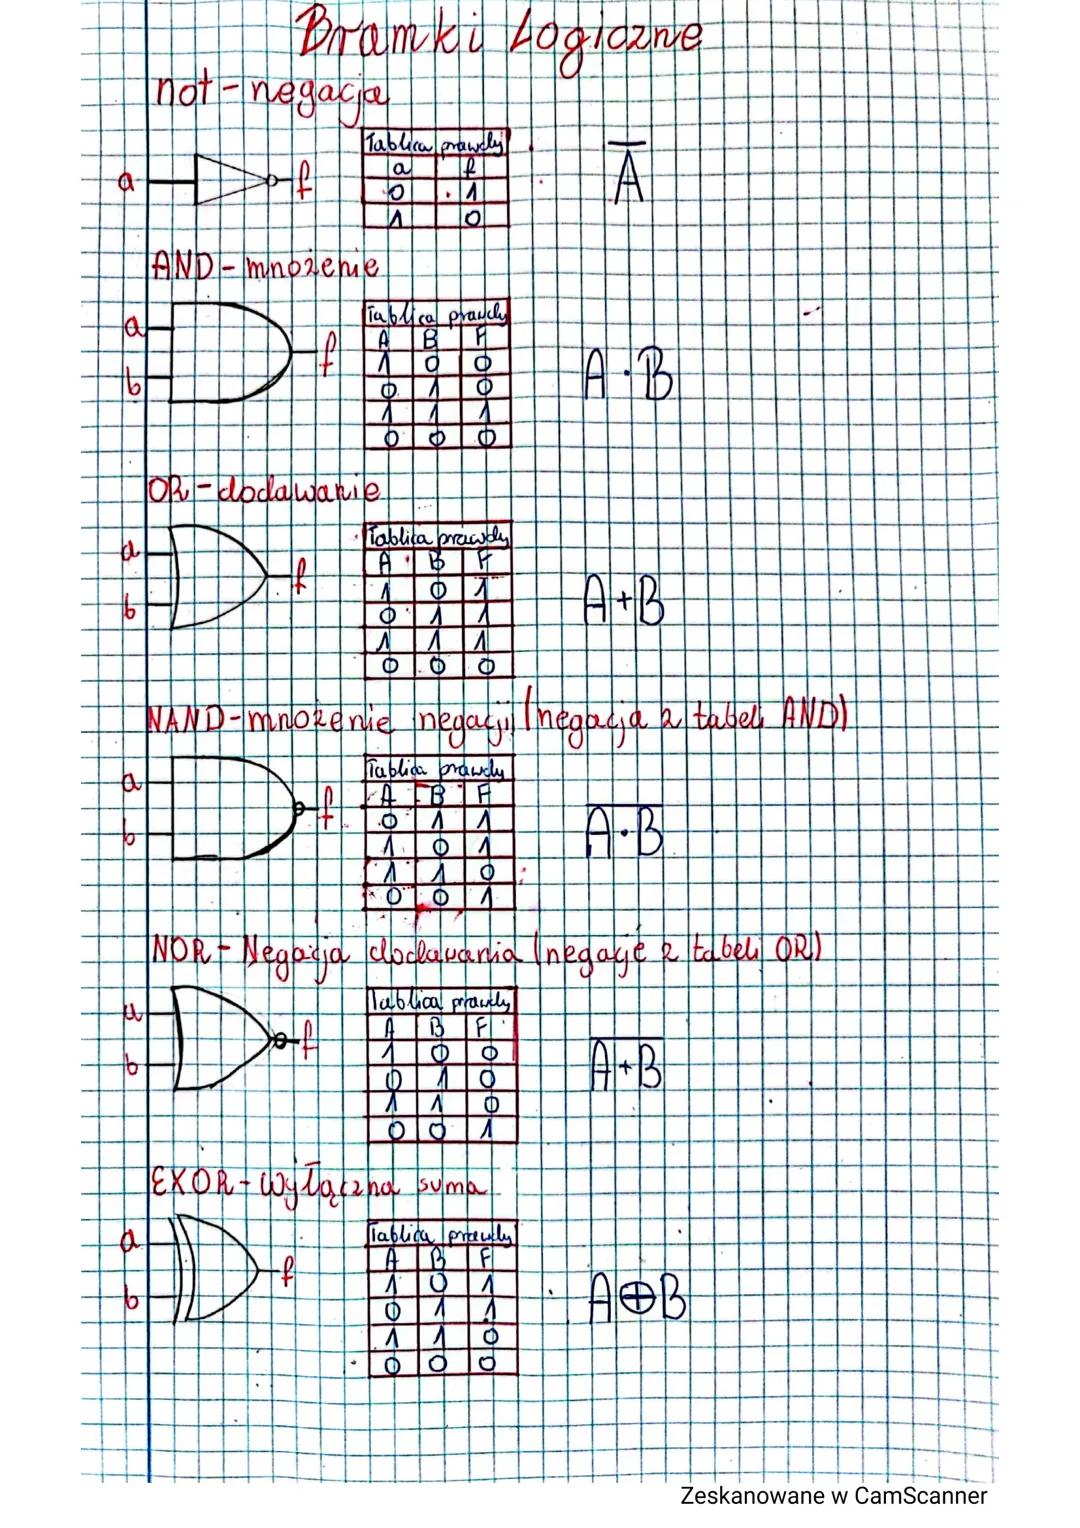 Bramki Logiczne
not - negacja
a f
Tablica prawdy
a f
0 1
1 0
A̅
AND - mnożenie
a
b
f
Tablica prawdy
A B F
1 0 0
0 1 0
1 1 1
0 0 0
A · B
OR - dodawanie
a
b
f
Tablica prawdy
A B F
1 0 1
0 1 1
1 1 1
0 0 0
A + B
NAND - mnożenie negacji (negacja z tabeli AND)
a
b
f
Tablica prawdy
A B F
0 1 1
1 0 1
1 1 0
0 0 1
A̅ ̅·̅ ̅B̅
NOR - Negacja dodawania (negacje z tabeli OR)
a
b
f
Tablica prawdy
A B F
1 0 0
0 1 0
1 1 0
0 0 1
A̅ ̅+̅ ̅B̅
EXOR - wyłączna suma
a
b
f
Tablica prawdy
A B F
1 0 1
0 1 1
1 1 0
0 0 0
A ⊕ B
Zeskanowane w CamScanner